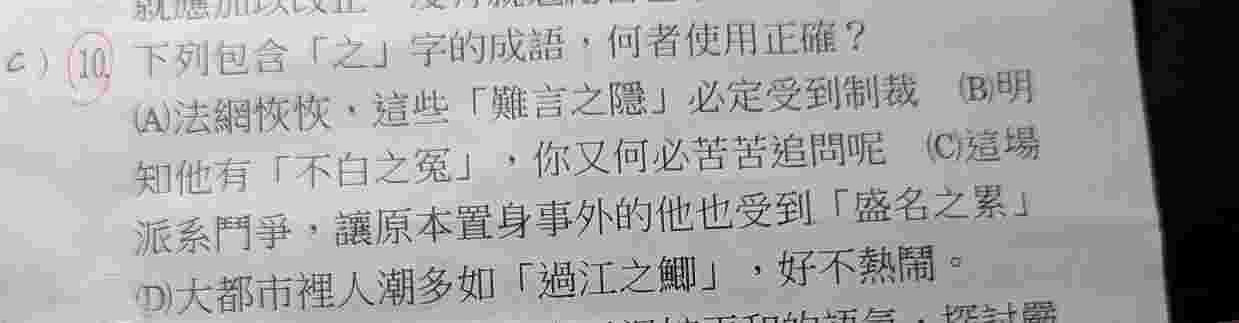 就應加以改正
C) 10. 下列包含「之」字的成語,何者使用正確?
(A)法網恢恢,這些「難言之隱」必定受到制裁 (B)明
知他有「不白之冤」,你又何必苦苦追問呢 (C)這場
派系鬥爭,讓原本置身事外的他也受到「盛名之累」
(D)大都市裡人潮多如「過江之鯽」,好不熱鬧。
的語氣,探討嚴